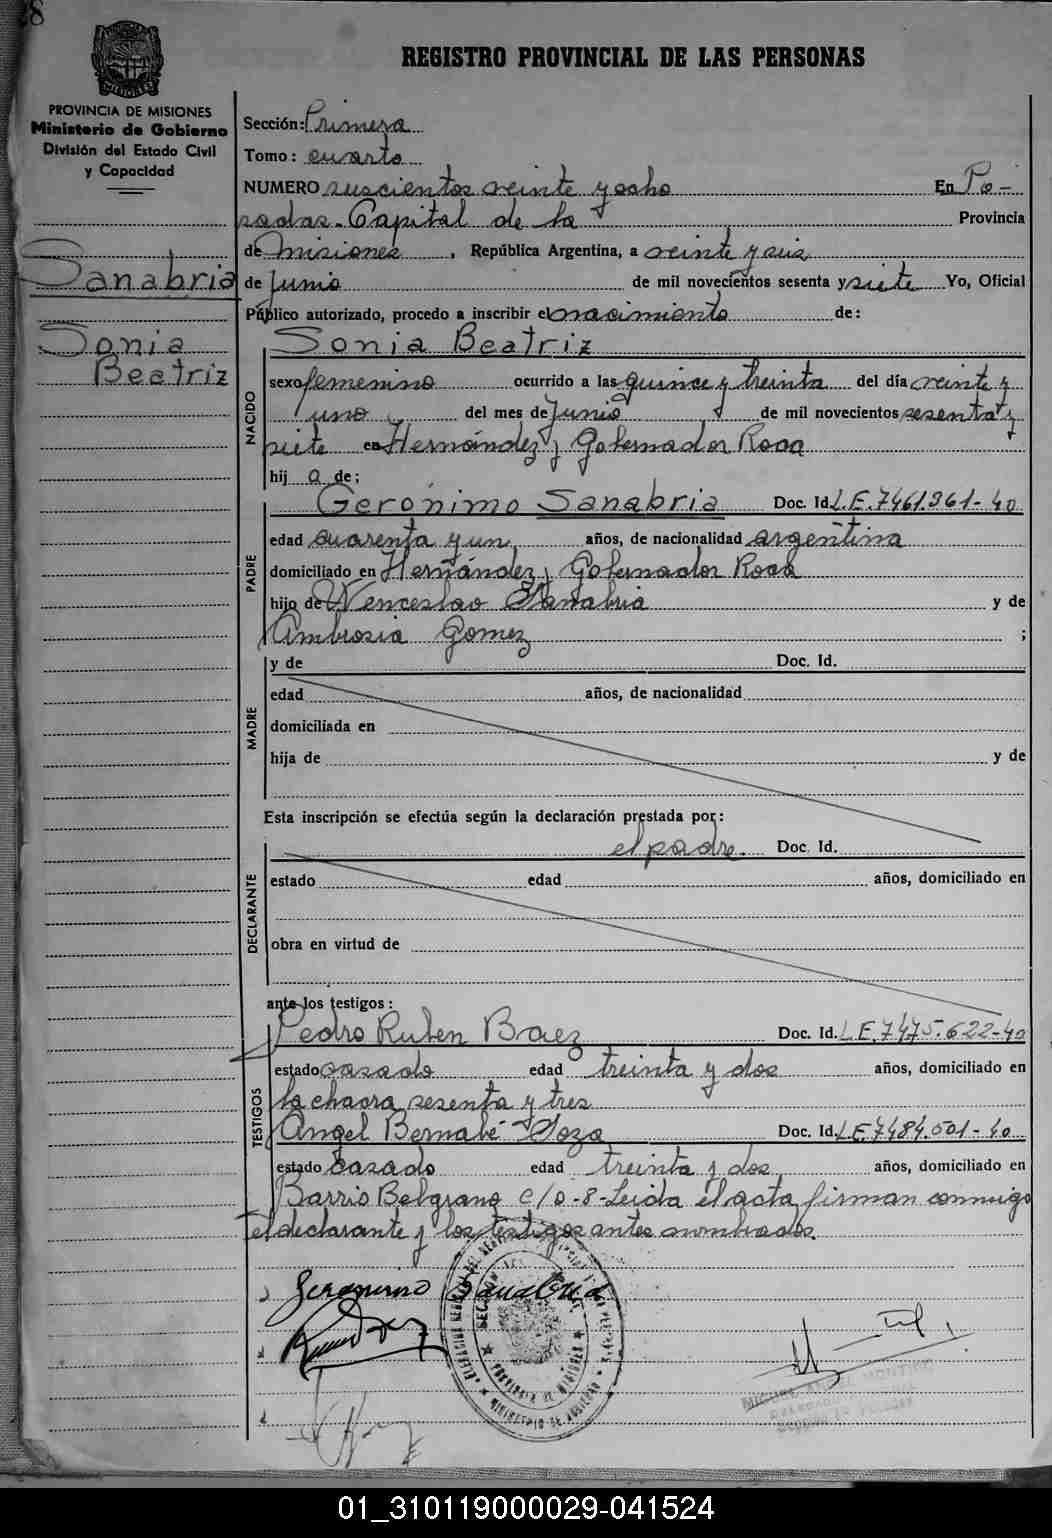 28
REGISTRO PROVINCIAL DE LAS PERSONAS
PROVINCIA DE MISIONES
Ministerio de Gobierno
División del Estado Civil
y Capacidad
Sanabria
Sonia
Beatriz
Sección: Primera
Tomo: cuarto
NUMERO seiscientos veinte y ocho En Po-
sadas-Capital de la Provincia
de Misiones, República Argentina, a veinte y seis
de Junio de mil novecientos sesenta y siete Yo, Oficial
Público autorizado, procedo a inscribir el nacimiento de:
NACIDO
Sonia Beatriz
sexo femenino ocurrido a las quince y treinta del día veinte y
uno del mes de Junio de mil novecientos sesenta y
siete en Hernández y Gobernador Roca
hij a de:
PADRE
Gerónimo Sanabria Doc. Id. L.E. 7461.361-40
edad cuarenta y un años, de nacionalidad argentina
domiciliado en Hernández y Gobernador Roca
hijo de Wenceslao Sanabria y de
Ambrosia Gomez ;
MADRE
y de Doc. Id.
edad años, de nacionalidad
domiciliada en
hija de y de
Esta inscripción se efectúa según la declaración prestada por:
DECLARANTE
el padre. Doc. Id.
estado edad años, domiciliado en
obra en virtud de
ante los testigos:
TESTIGOS
Pedro Ruben Baez Doc. Id. L.E. 7475.622-40
estado casado edad treinta y dos años, domiciliado en
la chacra sesenta y tres
Angel Bernabé Soza Doc. Id. L.E. 7484.501-40
estado casado edad treinta y dos años, domiciliado en
Barrio Belgrano c/0-8-Leida el acta, firman conmigo
el declarante y los testigos antes nombrados.
Geronimo Sanabria
PROVINCIA DE MISIONES
MIGUEL ANGEL
01_310119000029-041524